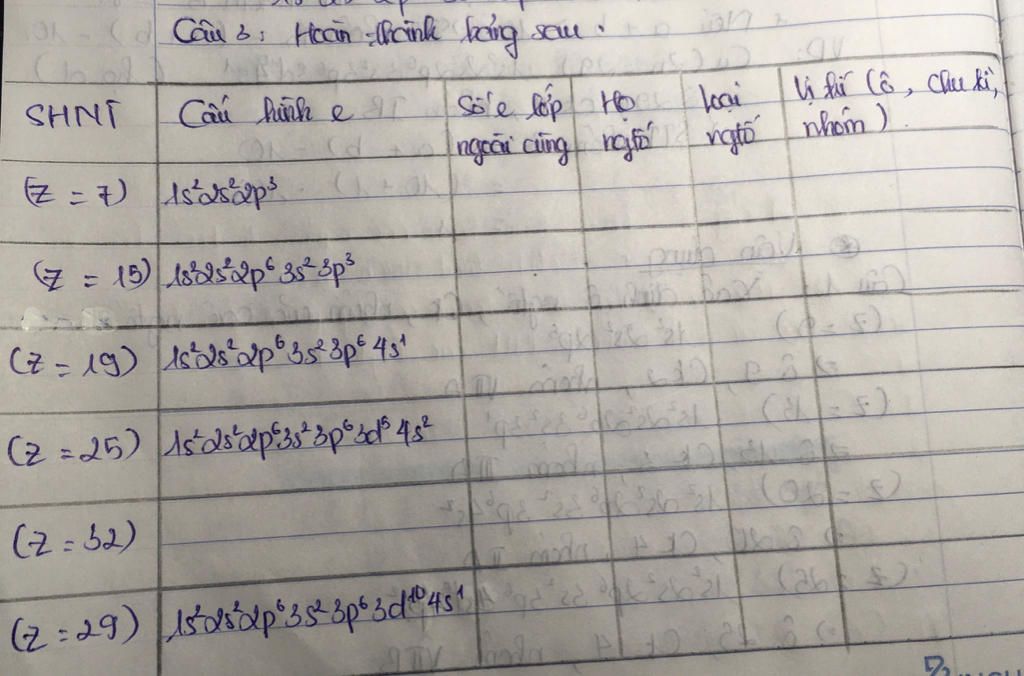 Câu 3: Hoàn thành bảng sau:
SHNT Cấu hình e Số e lớp ngoài cùng Họ ngtố loại ngtố Vị trí (ô, chu kì, nhóm)
(Z = 7) 1s²2s²2p³
(Z = 15) 1s²2s²2p⁶3s²3p³
(Z = 19) 1s²2s²2p⁶3s²3p⁶4s¹
(Z = 25) 1s²2s²2p⁶3s²3p⁶3d⁵4s²
(Z = 32)
(Z = 29) 1s²2s²2p⁶3s²3p⁶3d¹⁰4s¹